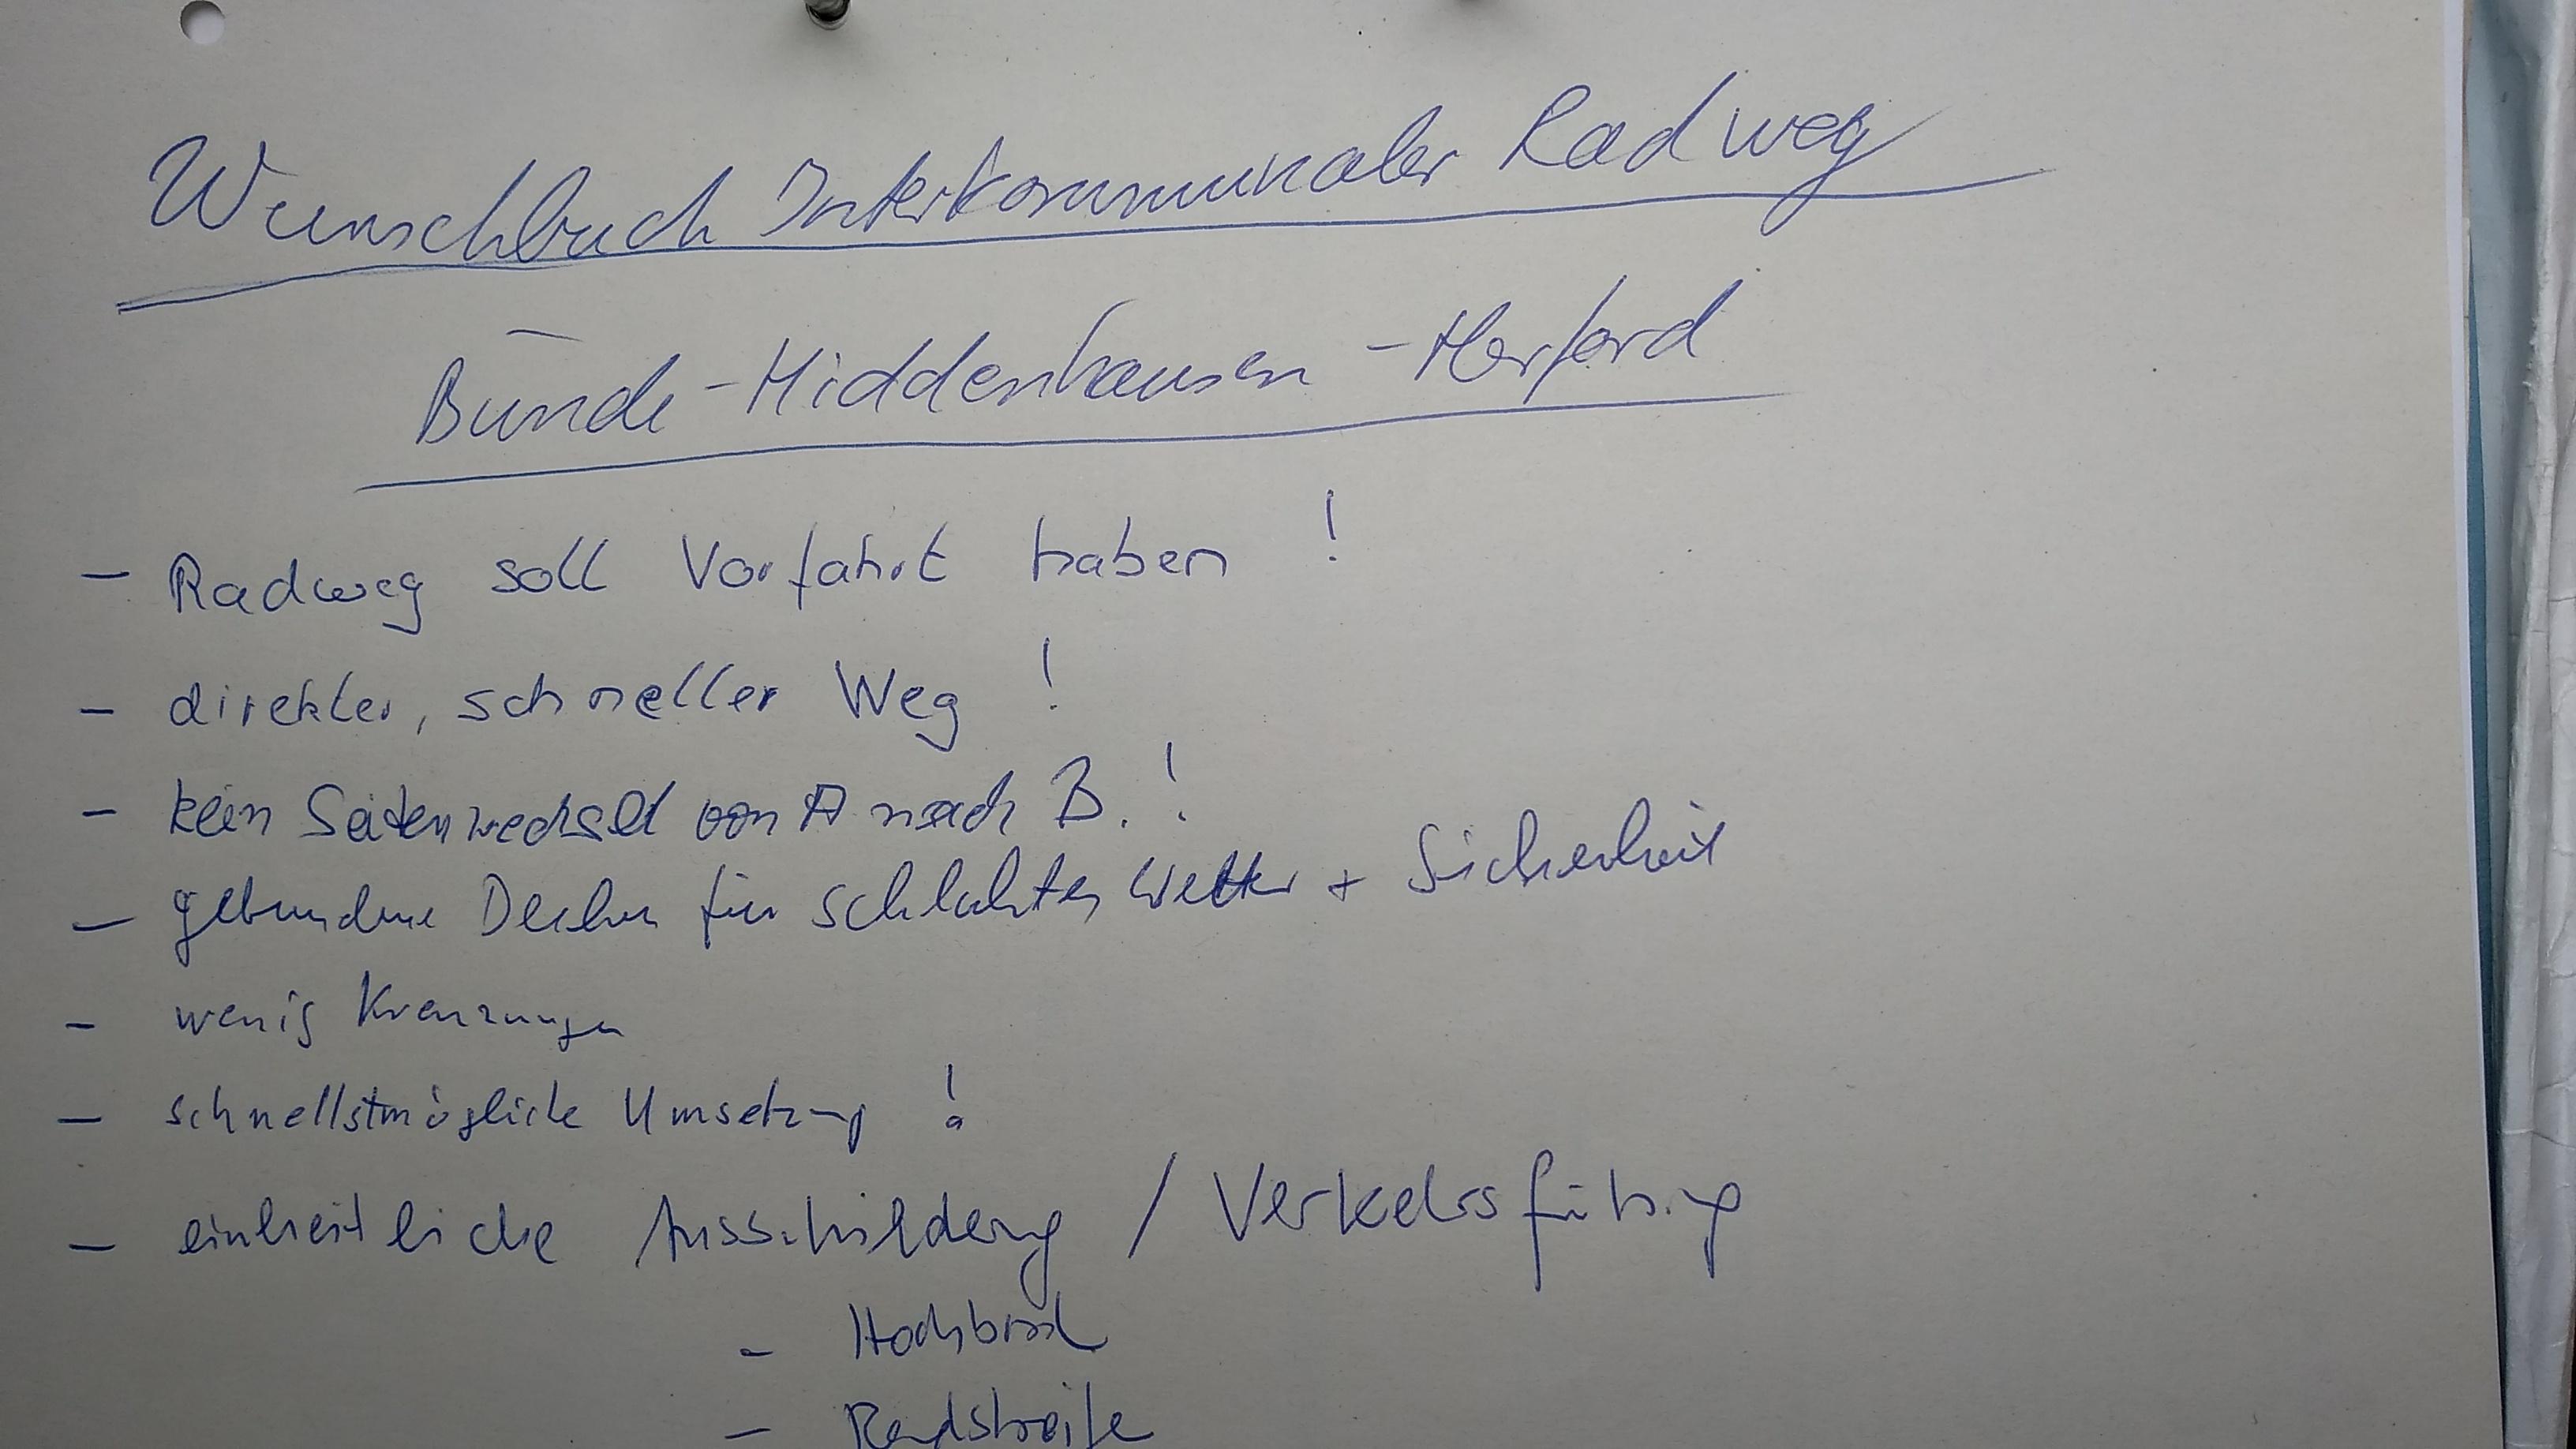 Wunschbuch Interkommunaler Radweg
Bünde - Hiddenhausen - Herford
- Radweg soll Vorfahrt haben !
- direkter, schneller Weg !
- kein Seitenwechsel von A nach B. !
- gebundene Decken für schlechtes Wetter + Sicherheit
- wenig Kreuzungen
- schnellstmögliche Umsetzung !
- einheitliche Ausschilderung / Verkehrsführung
- Hochbord
- Radstreife